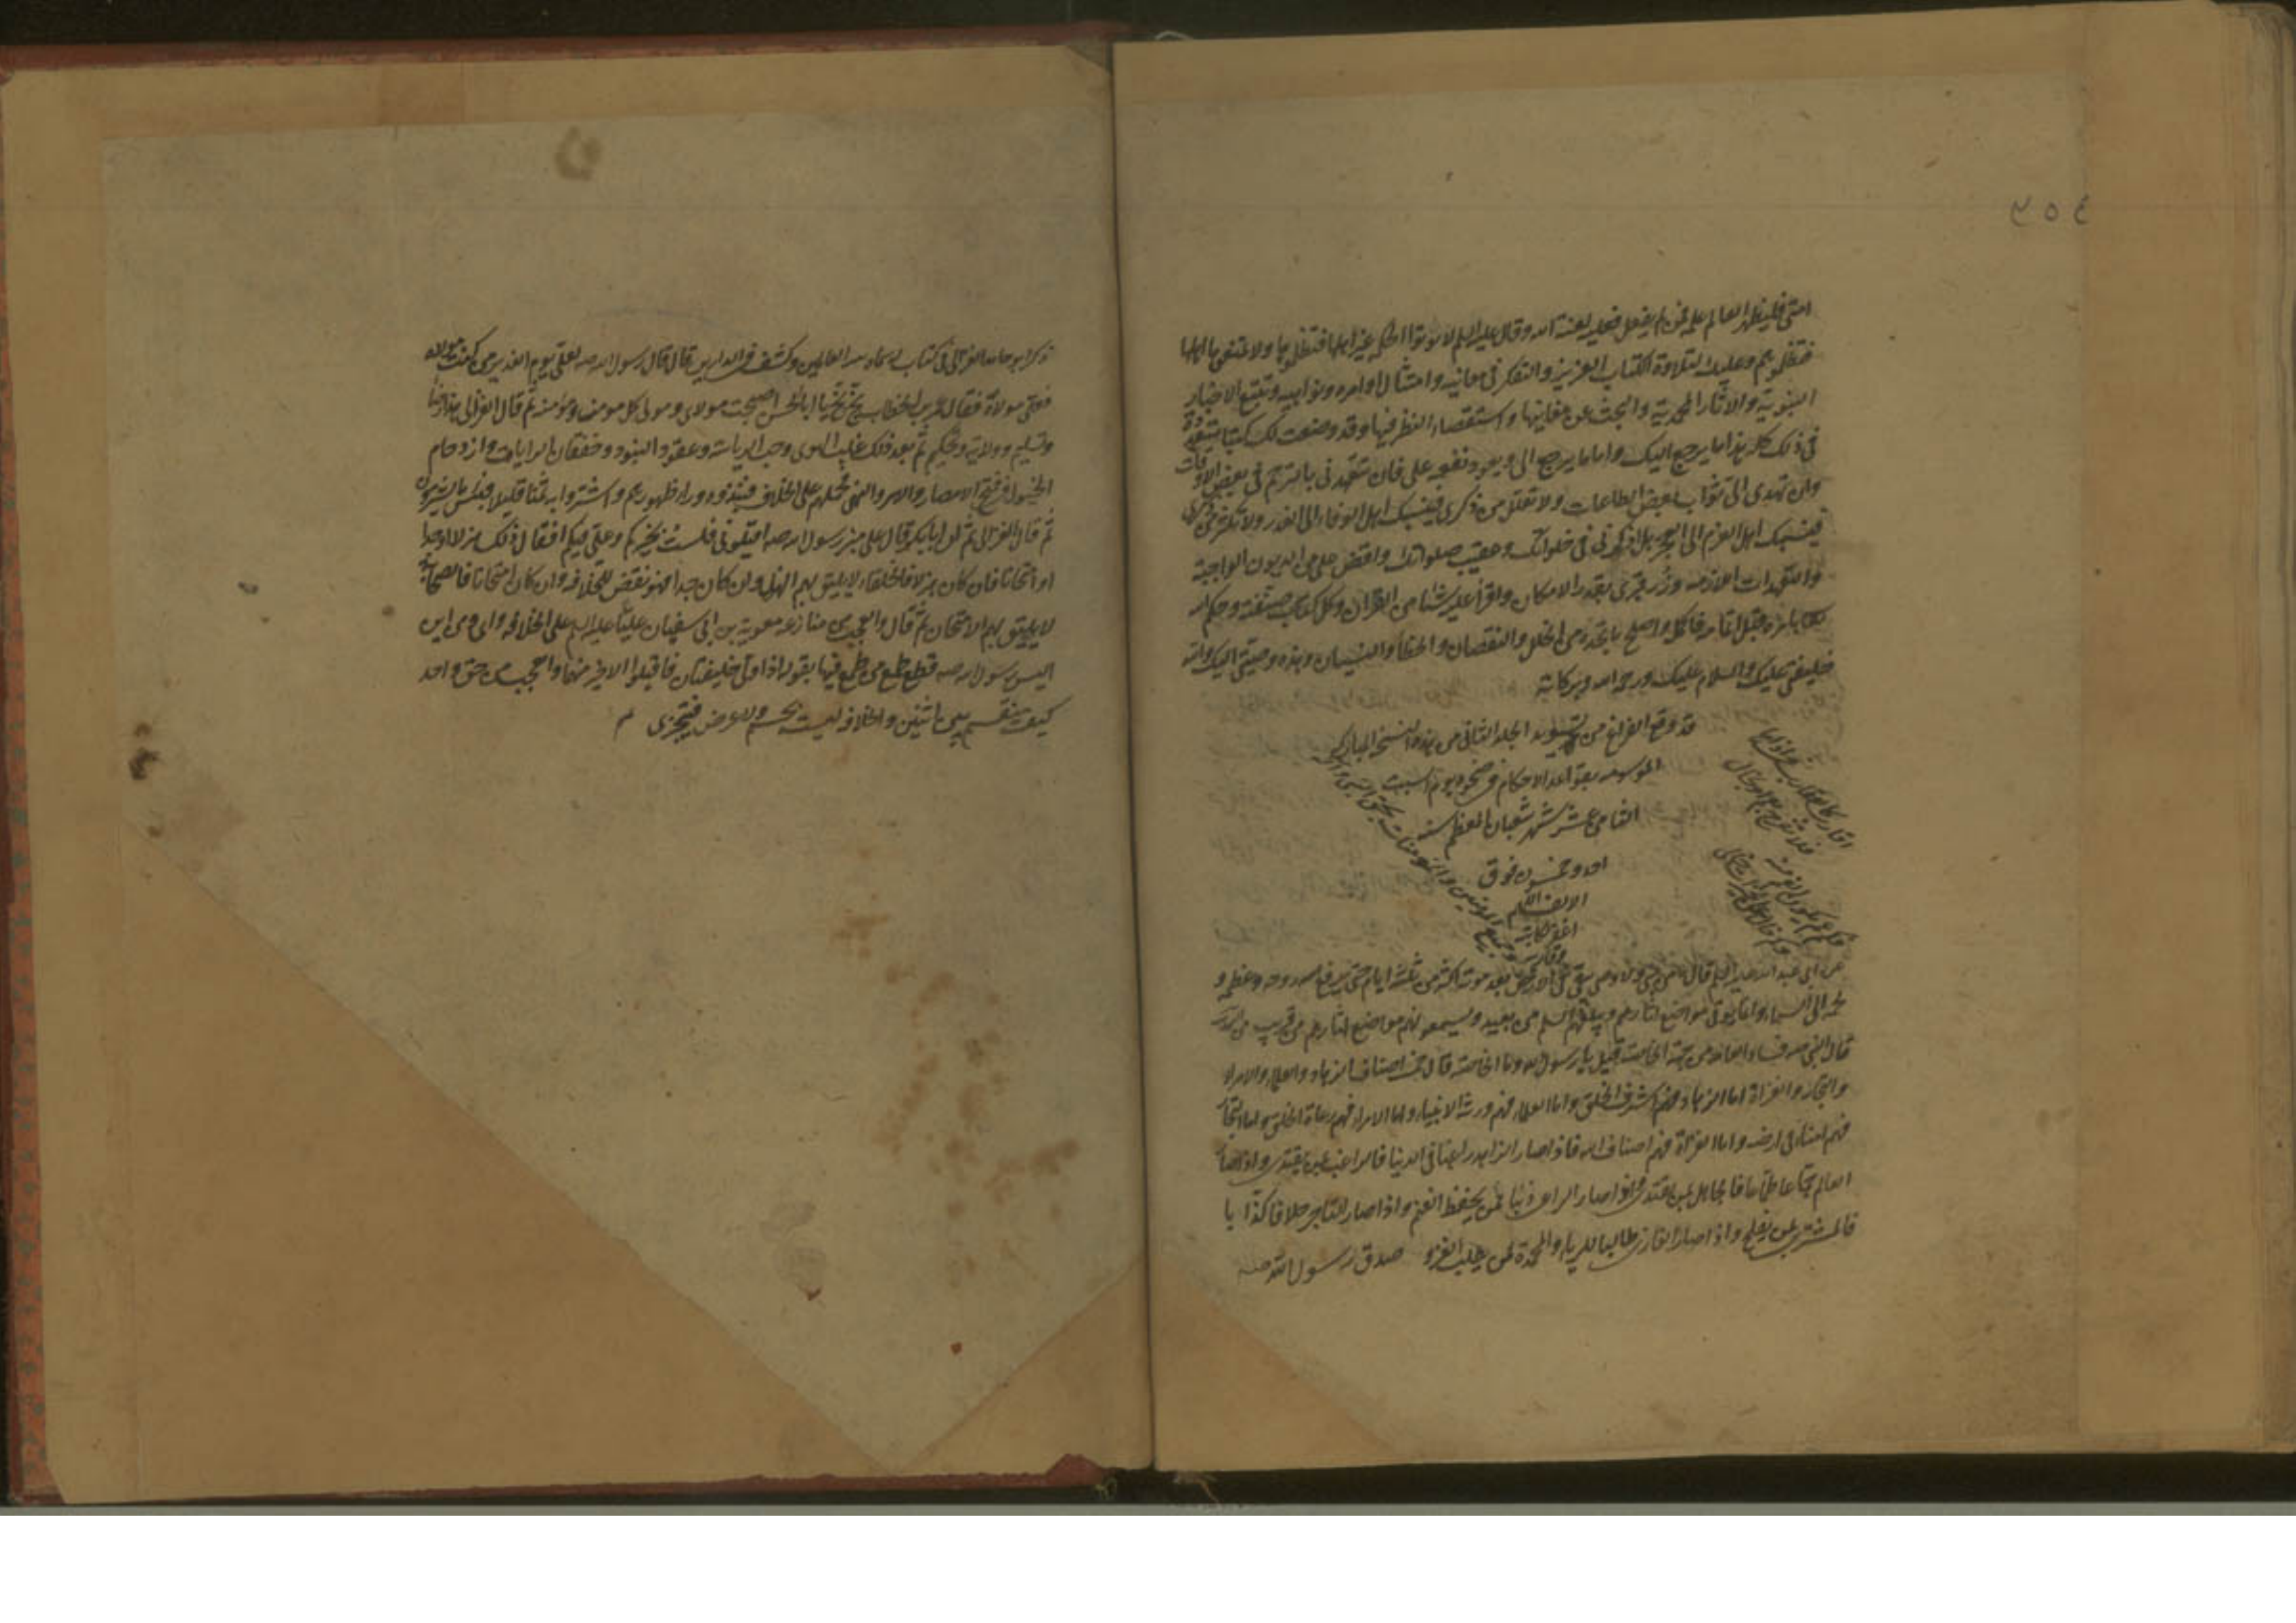 ٣٥٤
امتى فليظهر العالم علمه فمن لم يفعل فعليه لعنة الله وقال عليه السلم لا توتوا الحكمة غير اهلها فتظلموها ولا تمنعوها اهلها
فتظلموهم وعليك بتلاوة الكتاب العزيز والتفكر فى معانيه وامتثال اوامره ونواهيه وتتبع الاخبار
النبوية والاثار المحمدية والبحث عن معانيها واستقصاء النظر فيها وقد وضعت لك كتبا متعددة
فى ذلك كله هذا ما يرجع اليك واما ما يرجع الى ويعود نفعه على فان تتعهدنى بالترحم فى بعض الاوقات
وان تهدى الى ثواب بعض الطاعات ولا تقلل من ذكرى فينسبك اهل الوفاء الى الغدر ولا تكثر من ذكرى
فينسبك اهل العزم الى العجز بل اذكرنى فى خلواتك وعقيب صلواتك واقض ما على من الديون الواجبة
والتعهدات اللازمة وزر قبرى بقدر الامكان واقرا عليه شئا من القران وكل كتاب صنفته وحكم الله
بامره قبل اتمامه فاكمله واصلح ما تجده من الخلل والنقصان والخطأ والنسيان وهذه وصيتى اليك والله
خليفتى عليك والسلام عليك ورحمة الله وبركاته
قد وقع الفراغ من تسويد الجلد الثانى من هذه النسخة المباركة
الموسومه بقواعد الاحكام فى ضحوة يوم السبت
الثامن عشر شهر شعبان المعظم سنه
احد وخمسون فوق
الالف اللهم
اغفر لكاتبه
وقاريه ولجميع المؤمنين والمؤمنات بحق النبى واله
عن ابى عبد الله عليه السلم قال ما من نبى ولا وصى يبقى فى الارض بعد موته اكثر من ثلثة ايام حتى يرفع روحه وعظمه و
لحمه الى السماء وانما يوتى مواضع اثارهم ويبلغهم السلم من بعيد ويسمعونهم مواضع اثارهم من قريب
قال النبى صه فساد العامة من جهة الخاصة قيل يا رسول الله وما الخاصة قال خمسة اصناف الزهاد والعلماء والامراء
والتجار والغزاة اما الزهاد فهم اشرف الخلق واما العلماء فهم ورثة الانبياء واما الامراء فهم رعاة الخلق واما التجار
فهم امناء فى ارضه واما الغزاة فهم اصناف الله فاذا صار الزاهد راغبا فى الدنيا فالراغب بمن يقتدى واذا صار
العالم جماعا طماعا فالجاهل بمن يقتدى واذا صار الراعى ذئبا فمن يحفظ الغنم واذا صار التاجر حلافا كذابا
فالمشترى بمن يفلح واذا صار الغازى طالبا للرياء والمحمدة لمن يطلب الغزو صدق رسول الله صه
ذكر ابو حامد الغزالى فى كتاب المسماه بسر العالمين وكشف ما فى الدارين قال قال رسول الله صه لعلى يوم الغدير من كنت مولاه
فعلى مولاه فقال عمر بن الخطاب بخ بخ يا ابا الحسن اصبحت مولاى ومولى كل مومن ومؤمنة ثم قال الغزالى هذا رضا
وتسليم وولاية وتحكيم ثم بعد ذلك غلب الهوى وحب الرياسة وعقود البنود وخفقان الرايات وازدحام
الخيول فى فتح الامصار والامر والنهى تحملهم على الخلاف فنبذوه وراء ظهورهم واشتروا به ثمنا قليلا فبئس ما يشترون
ثم قال الغزالى ثم ان ابا بكر قال على منبر رسول الله صه اقيلونى فلست بخيركم وعلى فيكم افقال ذلك هزلا او جدا
او امتحانا فان كان هزلا فالخلفاء لا يليق بهم الهزل وان كان جدا فهو نقض للخلافه وان كان امتحانا فالصحابة
لا يليق بهم الامتحان ثم قال والعجب من منازعة معوية بن ابى سفيان عليا عليه السلم على الخلافه ومن اين
اليس رسول الله صه قطع طمع من طمع فيها بقوله اذا ولى خليفتان فاقتلوا الاخير منهما والعجب من حق واحد
كيف ينقسم بين اثنين والخلافه ليست بجسم ولا عرض فتجزى م